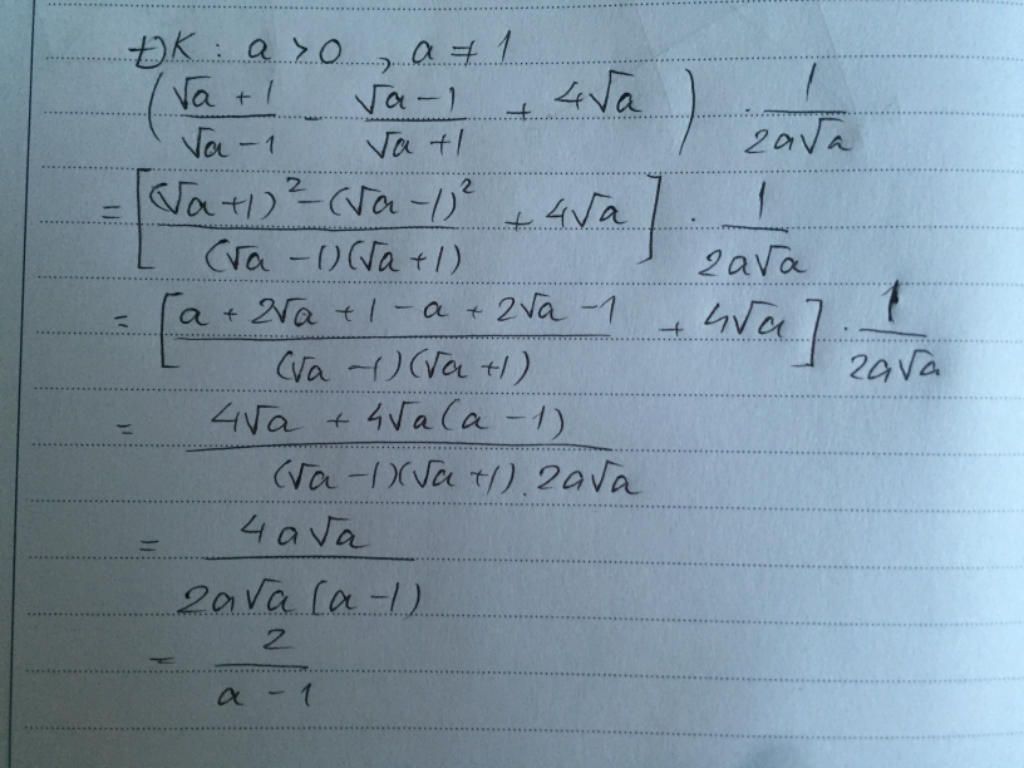 ĐK : a > 0 , a ≠ 1
( (√a + 1)/(√a - 1) - (√a - 1)/(√a + 1) + 4√a ) . 1/(2a√a)
= [ ((√a + 1)² - (√a - 1)²)/((√a - 1)(√a + 1)) + 4√a ] . 1/(2a√a)
= [ (a + 2√a + 1 - a + 2√a - 1)/((√a - 1)(√a + 1)) + 4√a ] . 1/(2a√a)
= (4√a + 4√a(a - 1))/((√a - 1)(√a + 1) . 2a√a)
= (4a√a)/(2a√a(a - 1))
= 2/(a - 1)